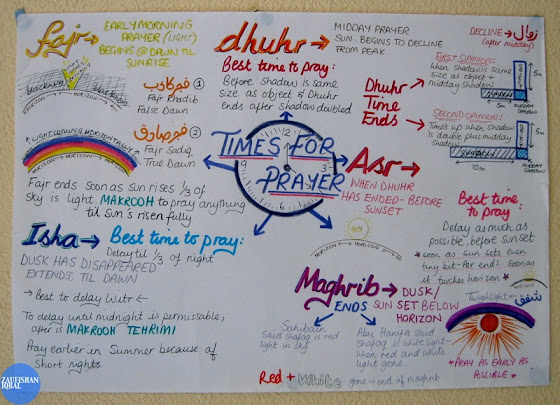 fajr →
EARLY MORNING
PRAYER (LIGHT)
BEGINS @ DAWN TIL
SUNRISE
blackness
blackness
HORIZON → HORIZON
فجر کاذب ①
Fajr Khadib
False Dawn
* LIGHT COMING HORIZONTALLY *
HORIZON → HORIZON
فجر صادق ②
Fajr Sadiq
True Dawn
Fajr ends soon as sun rises 1/3 of
sky is light MAKROOH to pray anything
til sun's risen fully
dhuhr →
MIDDAY PRAYER
SUN BEGINS TO DECLINE
FROM PEAK
Best time to pray:
Before Shadow is same
size as object & Dhuhr
ends after shadow doubled
DECLINE → زوال
(after midday)
Dhuhr
Time
Ends →
FIRST OPINION:
When Shadow is same
size as object +
midday shadow
5m
5m
MIDDAY
SHADOW
SECOND OPINION:
Times up when Shadow
is double plus midday
shadow
5m
10m
MIDDAY
SHADOW
TIMES FOR
PRAYER
12
3
9
Asr →
WHEN DHUHR
HAS ENDED - BEFORE
SUNSET
HORIZON → HORIZON
Best time
to pray:
Delay as much as
possible, before sunset
* soon as sun sets even
tiny bit - Asr ends! soon as
it touches horizon *
HORIZON
Isha →
Best time to pray:
Delay til 1/3 of night
DUSK HAS DISAPPEARED
EXTENDS TIL DAWN
→ best to delay Witr ←
To delay until midnight is permissable,
after is MAKROOH TEHRIMI
Pray earlier in Summer because of
short nights.
Maghrib →
DUSK/
SUN SET BELOW
HORIZON
ENDS
Sahibain
said shafaq is red
light in sky
Abu Hanifa said
shafaq is white light -
when red and white
light gone
Red + White gone = end of maghrib
Twighlight شفق
* PRAY AS EARLY AS
POSSIBLE *
ZAUFISHAN
IQBAL